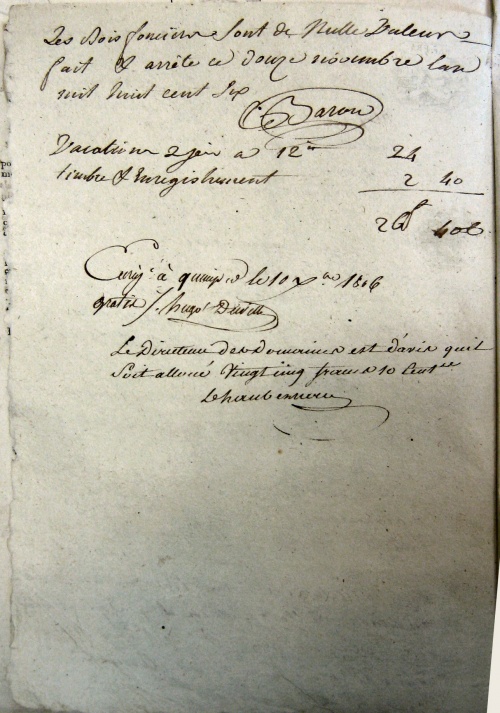 Les Bois fonciers sont de Nulle Valeur
fait & arrêté ce douze novembre l'an
mil huit cent six
Baron
Vacations 2 jours a 12# 24
timbre & Enregistrement 2 40
26f 40c
Enrg.é à quimper le 10 Xbre 1806
gratis
Le Directeur des Domaines est d'avis qu'il
soit alloué Vingt cinq francs 10 Cent.es